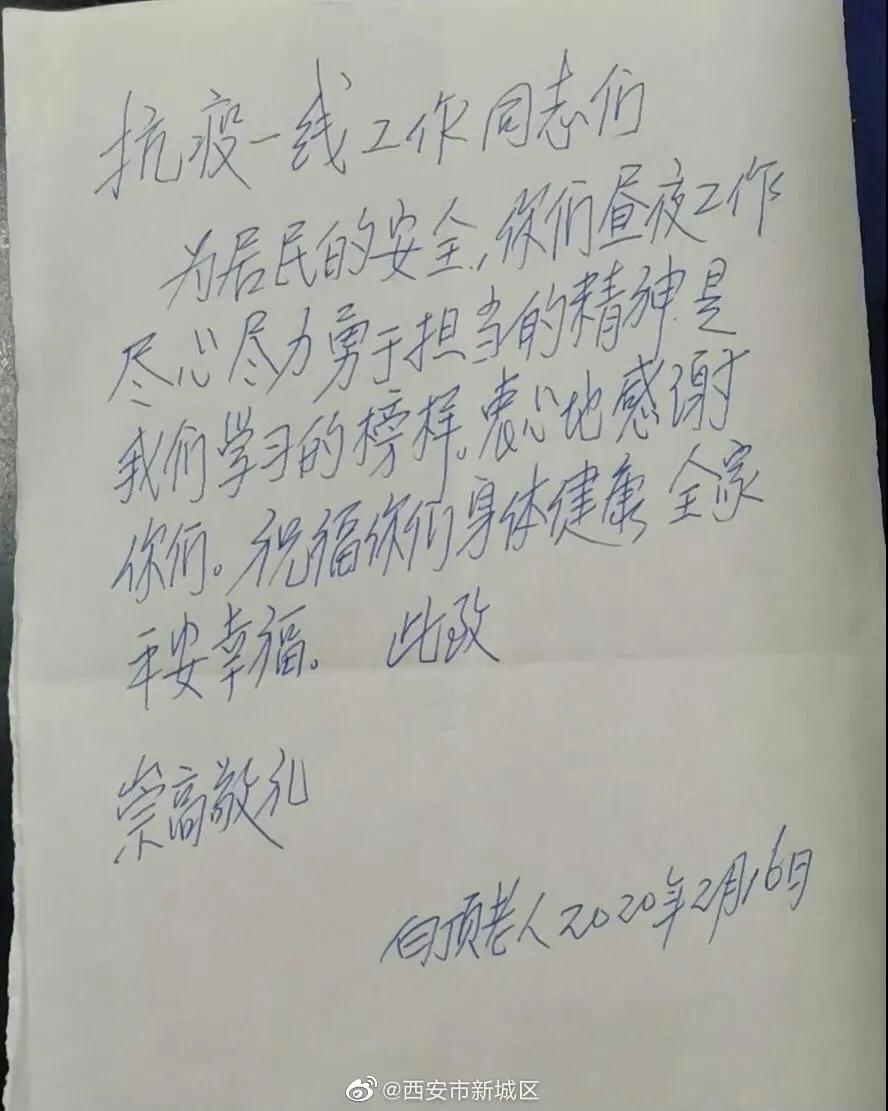 抗疫一线工作同志们
为居民的安全,你们昼夜工作
尽心尽力勇于担当的精神是
我们学习的榜样。衷心地感谢
你们。祝福你们身体健康 全家
平安幸福。 此致
崇高敬礼
白顶老人2020年2月16日
@西安市新城区